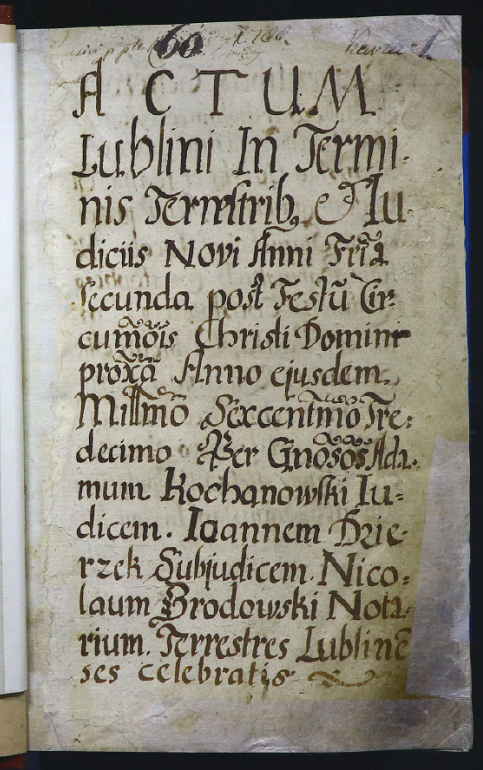 60
A C T U M
Lublini In Termi-
nis Terrestrib, & Iu-
diciis Novi Anni Fria
secunda post Festũ Cir-
cumõis Christi Domini
proxã Anno ejusdem.
Millmõ Sexcentmõ Tre:
decimo Per Gnõsõs Ada-
mum Kochanowski Iu=
dicem. Ioannem Drie-
rzek Subjudicem. Nico:
laum Brodowski Nota-
rium. Terrestres Lublinẽ
ses celebratis